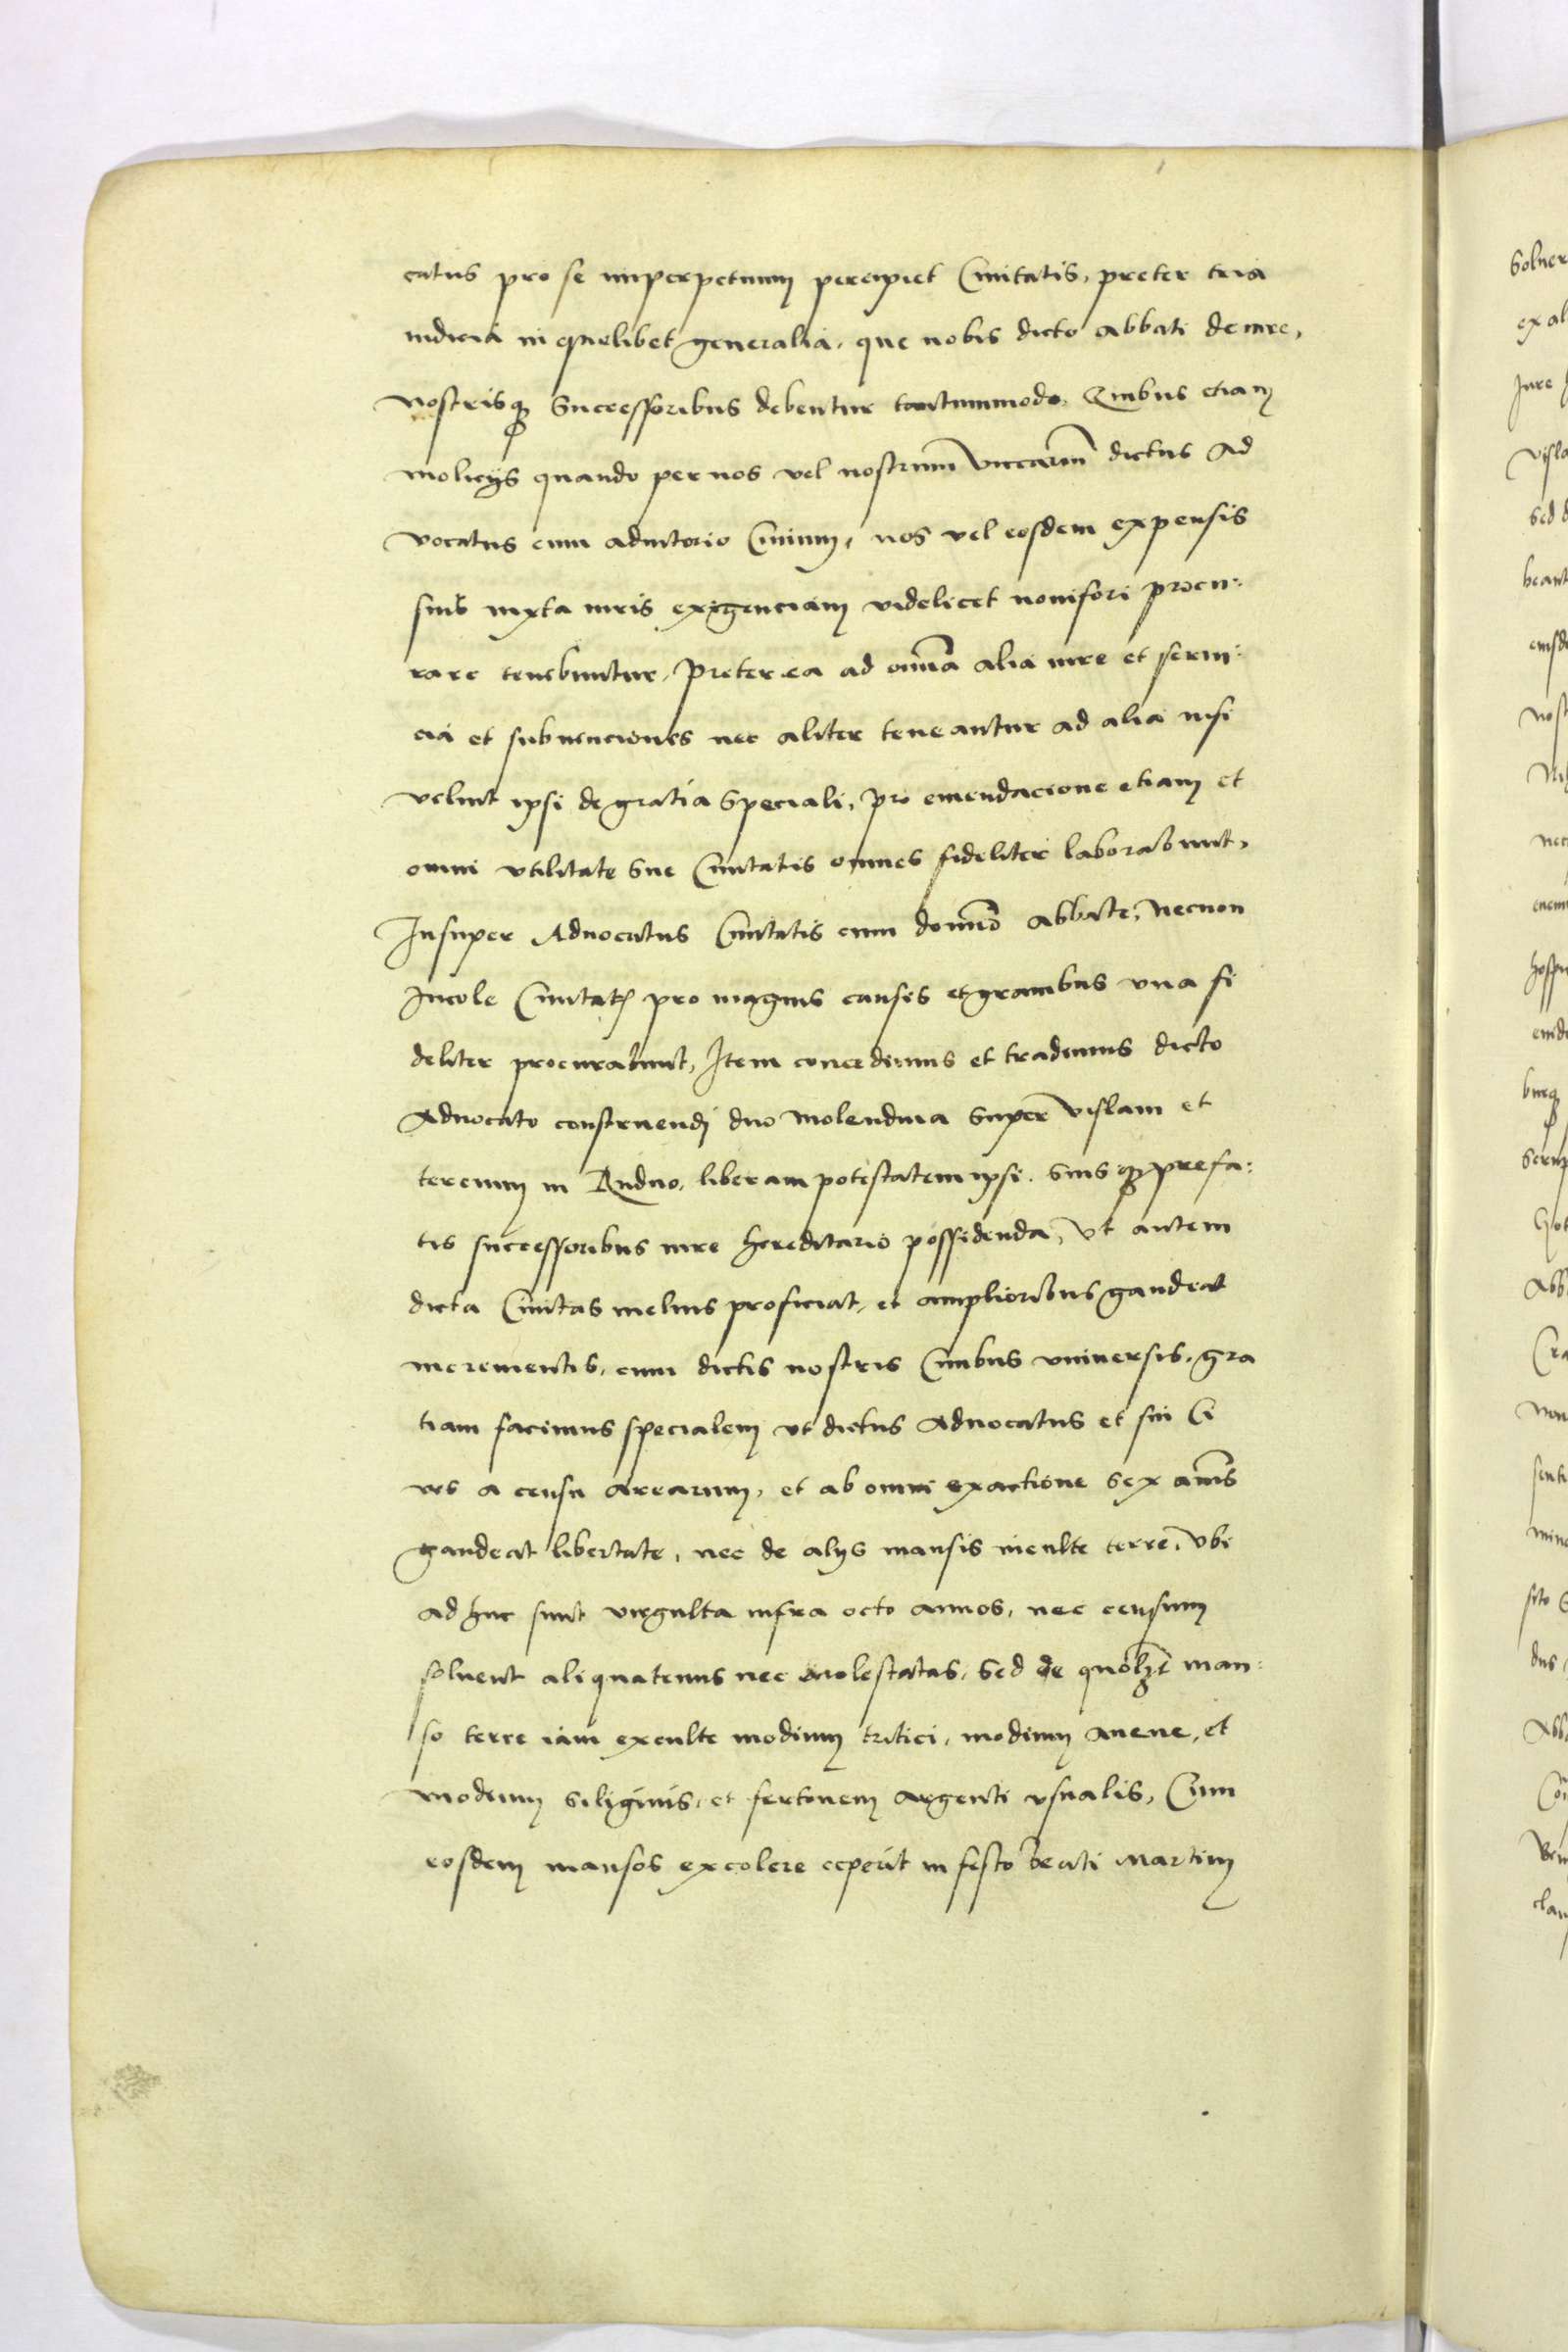 catus pro se imperpetuum percipiet Ciuitatis, preter tria
iudicia in quelibet generalia, que nobis dicto abbati de iure,
nostrisq; Successoribus debentur tantummodo, Quibus etiam
molicijs quando per nos vel nostrum viccarium dictus Ad
vocatus cum adiutorio Ciuium, nos vel eosdem expensis
suis iuxta iuris exigenciam videlicet nonifori procu:
rare tenebuntur, Preter ea ad omnia alia iure et serui:
cia et subuenciones nec aliter teneantur ad alia nisi
velint ipsi de gratia Speciali, pro emendacione etiam et
omni vtilitate Sue Ciuitatis omnes fideliter laborabunt,
Insuper Aduocatus Ciuitatis cum domino Abbate, Necnon
Incole Ciuitatis pro magnis causis et grauibus vna fi
deliter procurabunt, Item concedimus et tradimus dicto
Aduocato construendi duo Molendina Super Vislam et
tercium in Rudno, liberam potestatem ipsi. Suisq; prefa:
tis successoribus iure hereditario possidenda, Vt autem
dicta Ciuitas melius proficiat, et amplioribus gaudeat
incrementis, cum dictis nostris Ciuibus vniuersis, gra
tiam facimus specialem vt dictus Aduocatus et sui Ci
ues a censu arearum, et ab omni exactione Sex annis
gaudeat libertate, nec de alijs mansis inculte terre, Vbi
ad huc sunt virgulta infra octo annos, nec censum
soluent aliquatenus nec molestatas, Sed de quolibet man:
so terre iam exculte modium tritici, modium Auene, et
modium Siliginis, et fertonem Argenti vsualis, Cum
eosdem mansos excolere ceperit in festo beati Martini